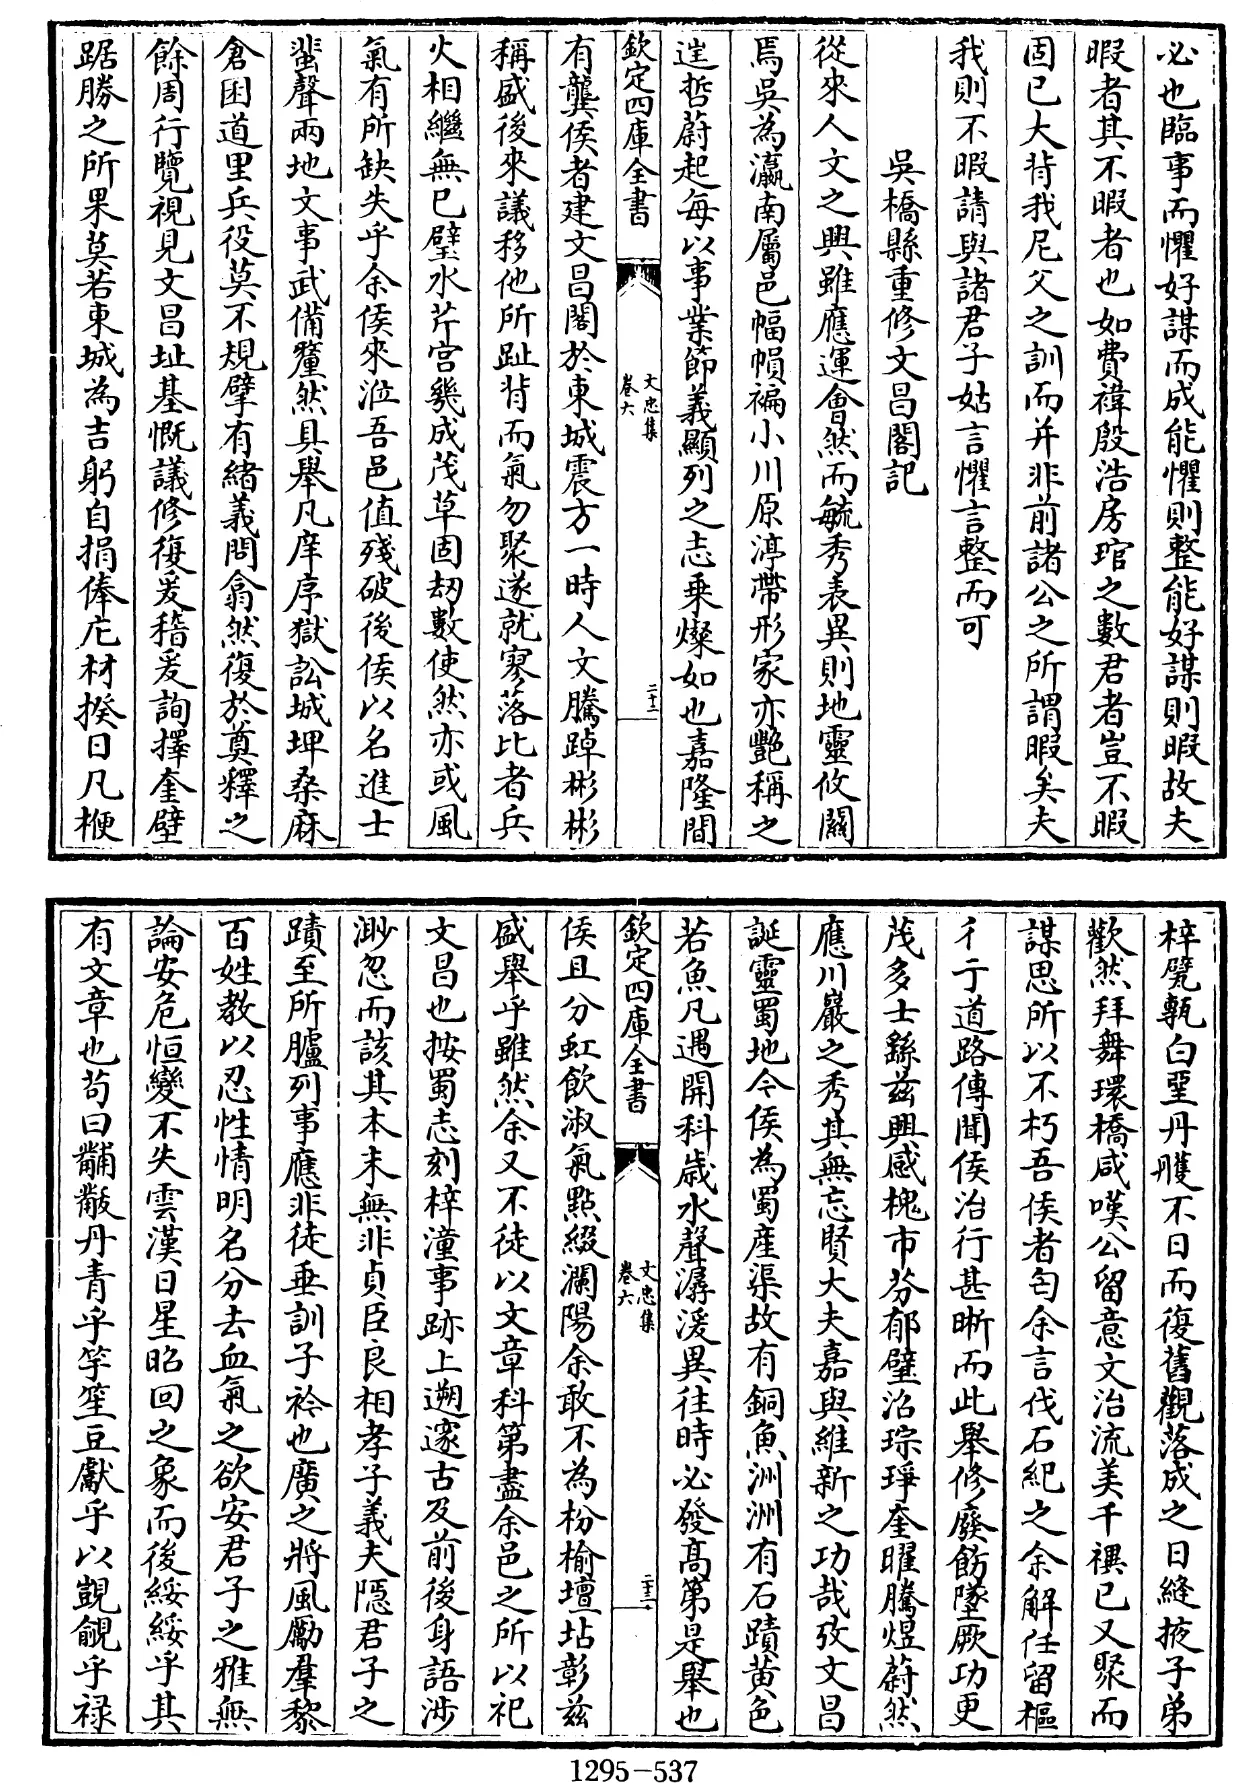 必也臨事而懼好謀而成能懼則整能好謀則暇故夫
暇者其不暇者也如費禕殷浩房琯之數君者豈不暇
固已大背我尼父之訓而并非前諸公之所謂暇矣夫
我則不暇請與諸君子姑言懼言整而可
吳橋縣重修文昌閣記
從來人文之興雖應運會然而毓秀表異則地靈攸關
焉吳為瀛南屬邑幅幀褊小川原渟帶形家亦艷稱之
迬哲蔚起每以事業節義顯列之志乗燦如也嘉隆間
欽定四庫全書
文忠集
卷六
二十二
有龔侯者建文昌閣於東城震方一時人文騰踔彬彬
稱盛後來議移他所趾背而氣勿聚遂就寥落比者兵
火相繼無已璧水芹宫幾成茂草固刼數使然亦或風
氣有所缺失乎余侯來涖吾邑值殘破後侯以名進士
蜚聲兩地文事武備釐然具舉凡庠序獄訟城埤桑麻
倉囷道里兵役莫不規擘有緒義問翕然復於奠釋之
餘周行覽視見文昌址基慨議修復爰稽爰詢擇奎壁
踞勝之所果莫若東城為吉躬自捐俸庀材揆日凡楩
梓甓甎白堊丹雘不日而復舊觀落成之日縫掖子弟
歡然拜舞環橋咸嘆公留意文治流美千禩已又聚而
謀思所以不朽吾侯者匄余言伐石紀之余解任留樞
彳亍道路傳聞侯治行甚晰而此舉修廢飭墜厥功更
茂多士繇兹興感槐市芬郁璧沼琮琤奎曜騰煜蔚然
應川巖之秀其無忘賢大夫嘉與維新之功哉攷文昌
誕靈蜀地今侯為蜀産渠故有銅魚洲洲有石蹟黄色
若魚凡遇開科歲水聲潺湲異往時必發髙第是舉也
欽定四庫全書
文忠集
卷六
二十三
侯且分虹飲淑氣點綴瀾陽余敢不為枌榆壇坫彰兹
盛舉乎雖然余又不徒以文章科第盡余邑之所以祀
文昌也按蜀志刻梓潼事跡上遡邃古及前後身語涉
渺忽而該其本末無非貞臣良相孝子義夫隱君子之
蹟至所臚列事應非徒垂訓子衿也廣之將風勵羣黎
百姓教以忍性情明名分去血氣之欲安君子之雅無
論安危恒變不失雲漢日星昭回之象而後綏綏乎其
有文章也茍曰黼黻丹青乎竽笙豆獻乎以覬覦乎禄
1295-537